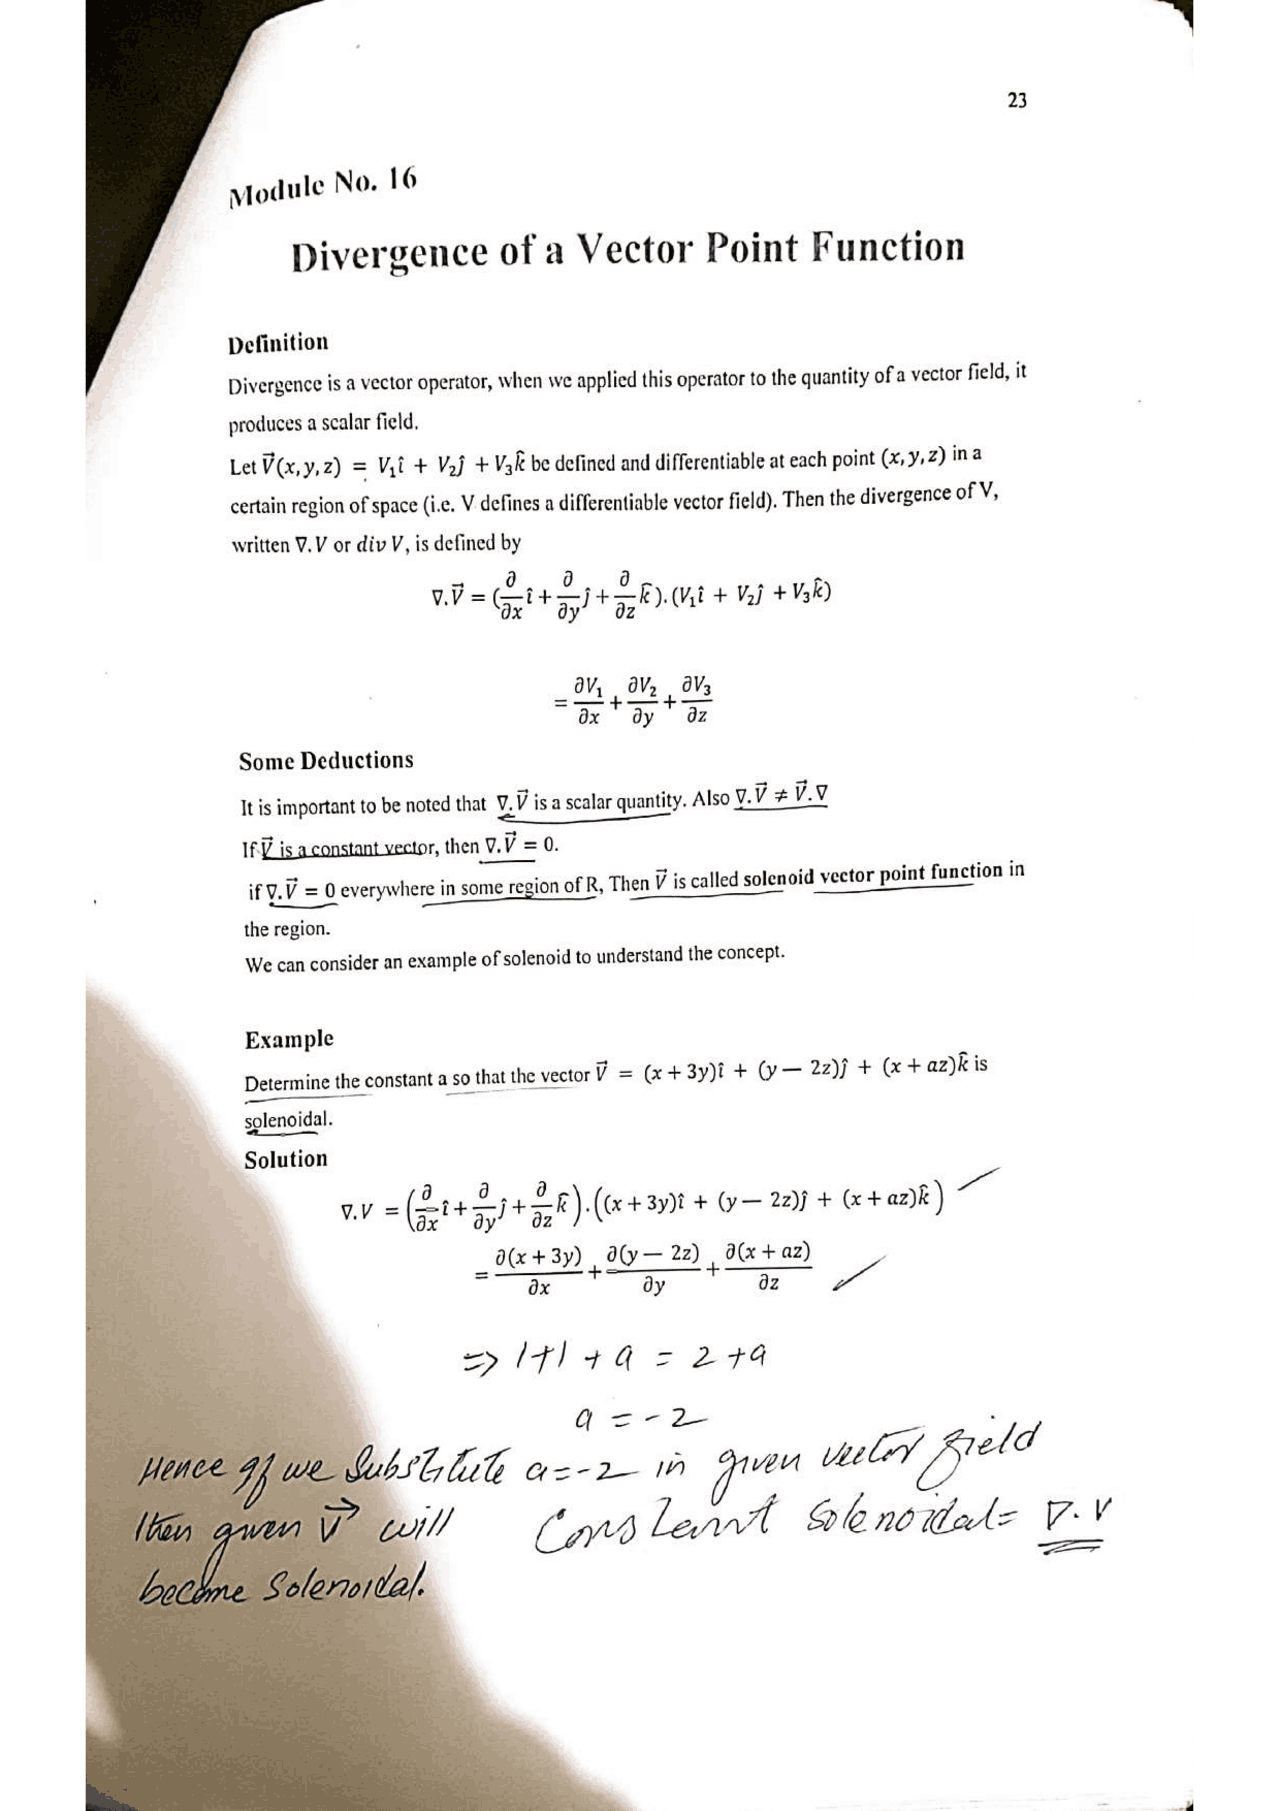 23
Module No. 16
Divergence of a Vector Point Function
Definition
Divergence is a vector operator, when we applied this operator to the quantity of a vector field, it
produces a scalar field.
Let V⃗(x, y, z) = V₁î + V₂ĵ + V₃k̂ be defined and differentiable at each point (x, y, z) in a
certain region of space (i.e. V defines a differentiable vector field). Then the divergence of V,
written ∇. V or div V, is defined by
∇. V⃗ = (∂/∂x î + ∂/∂y ĵ + ∂/∂z k̂ ). (V₁î + V₂ĵ + V₃k̂)
= ∂V₁/∂x + ∂V₂/∂y + ∂V₃/∂z
Some Deductions
It is important to be noted that ∇. V⃗ is a scalar quantity. Also ∇. V⃗ ≠ V⃗. ∇
If V⃗ is a constant vector, then ∇. V⃗ = 0.
if ∇. V⃗ = 0 everywhere in some region of R, Then V⃗ is called solenoid vector point function in
the region.
We can consider an example of solenoid to understand the concept.
Example
Determine the constant a so that the vector V⃗ = (x + 3y)î + (y − 2z)ĵ + (x + az)k̂ is
solenoidal.
Solution
∇. V = (∂/∂x î + ∂/∂y ĵ + ∂/∂z k̂ ). ((x + 3y)î + (y − 2z)ĵ + (x + az)k̂ )
= ∂(x + 3y)/∂x + ∂(y − 2z)/∂y + ∂(x + az)/∂z
⇒ 1+1 + a = 2 + a
a = -2
Hence if we Substitute a=-2 in given vector field
then given V⃗ will Constannt Solenoidal = ∇. V
become Solenoidal.